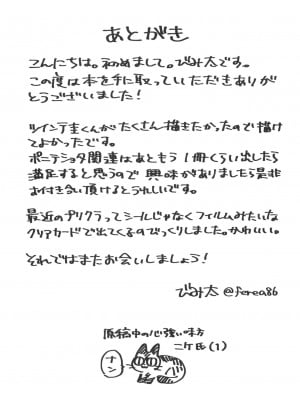 あとがき
こんにちは。初めまして。びみ太です。
この度は本を手に取っていただきありが
とうございました!
ツインテ圭くんがたくさん描きたかったので描け
てよかったです。
ポニテショタ関連はあともう1冊くらい出したら
満足すると思うので興味がありましたら是非
お付き合い頂けるとうれしいです。
最近のプリクラってシールじゃなくフィルムみたいな
クリアカードで出てくるのでびっくりしました。かわいい。
それではまたお会いしましょう!
びみ太 @ferea86
原稿中の心強い味方
ニケ氏(1)
ナン